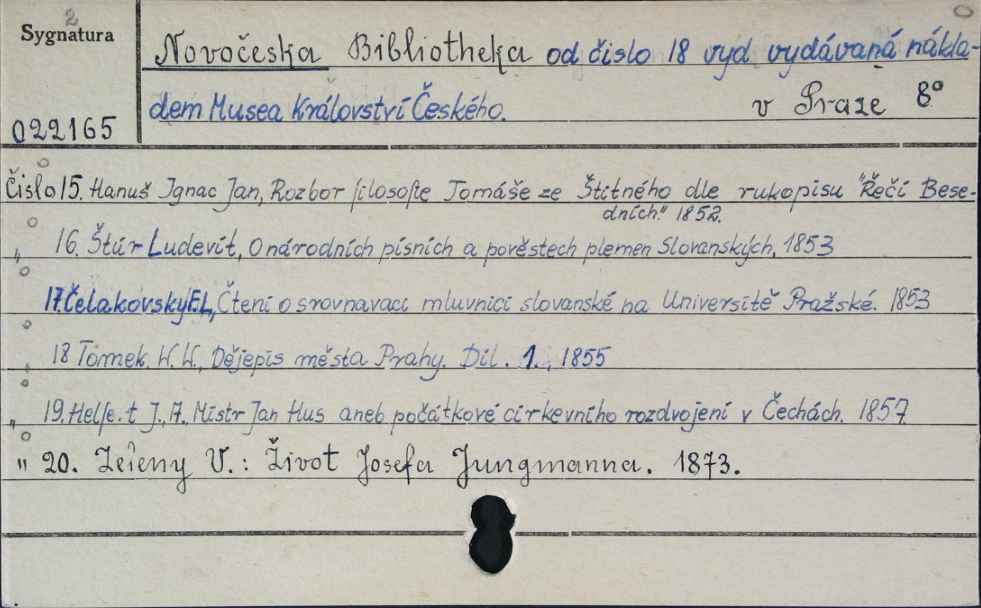 2
Sygnatura
Novočeska Bibliotheka od čislo 18 vyd vydávaná nákla-
dem Musea Království Českého. v Praze 8°
022165
Čislo 15. Hanuš Ignac Jan, Rozbor filosofie Tomáše ze Štitného dle rukopisu "Řečí Bese-
dních." 1852.
" 16. Štúr Ludevít, O národních písních a pověstech plemen Slovanských, 1853
17. Čelakovsky F.L, Čteni o srovnavaci mluvnici slovanské na Universitě Pražské. 1853
18 Tomek. W. W., Dějepis města Prahy. Díl. 1., 1855
" 19. Helfe.t J., A. Mistr Jan Hus aneb počátkové cirkevního rozdvojení v Čechách. 1857
" 20. Zeleny V.: Život Josefa Jungmanna. 1873.